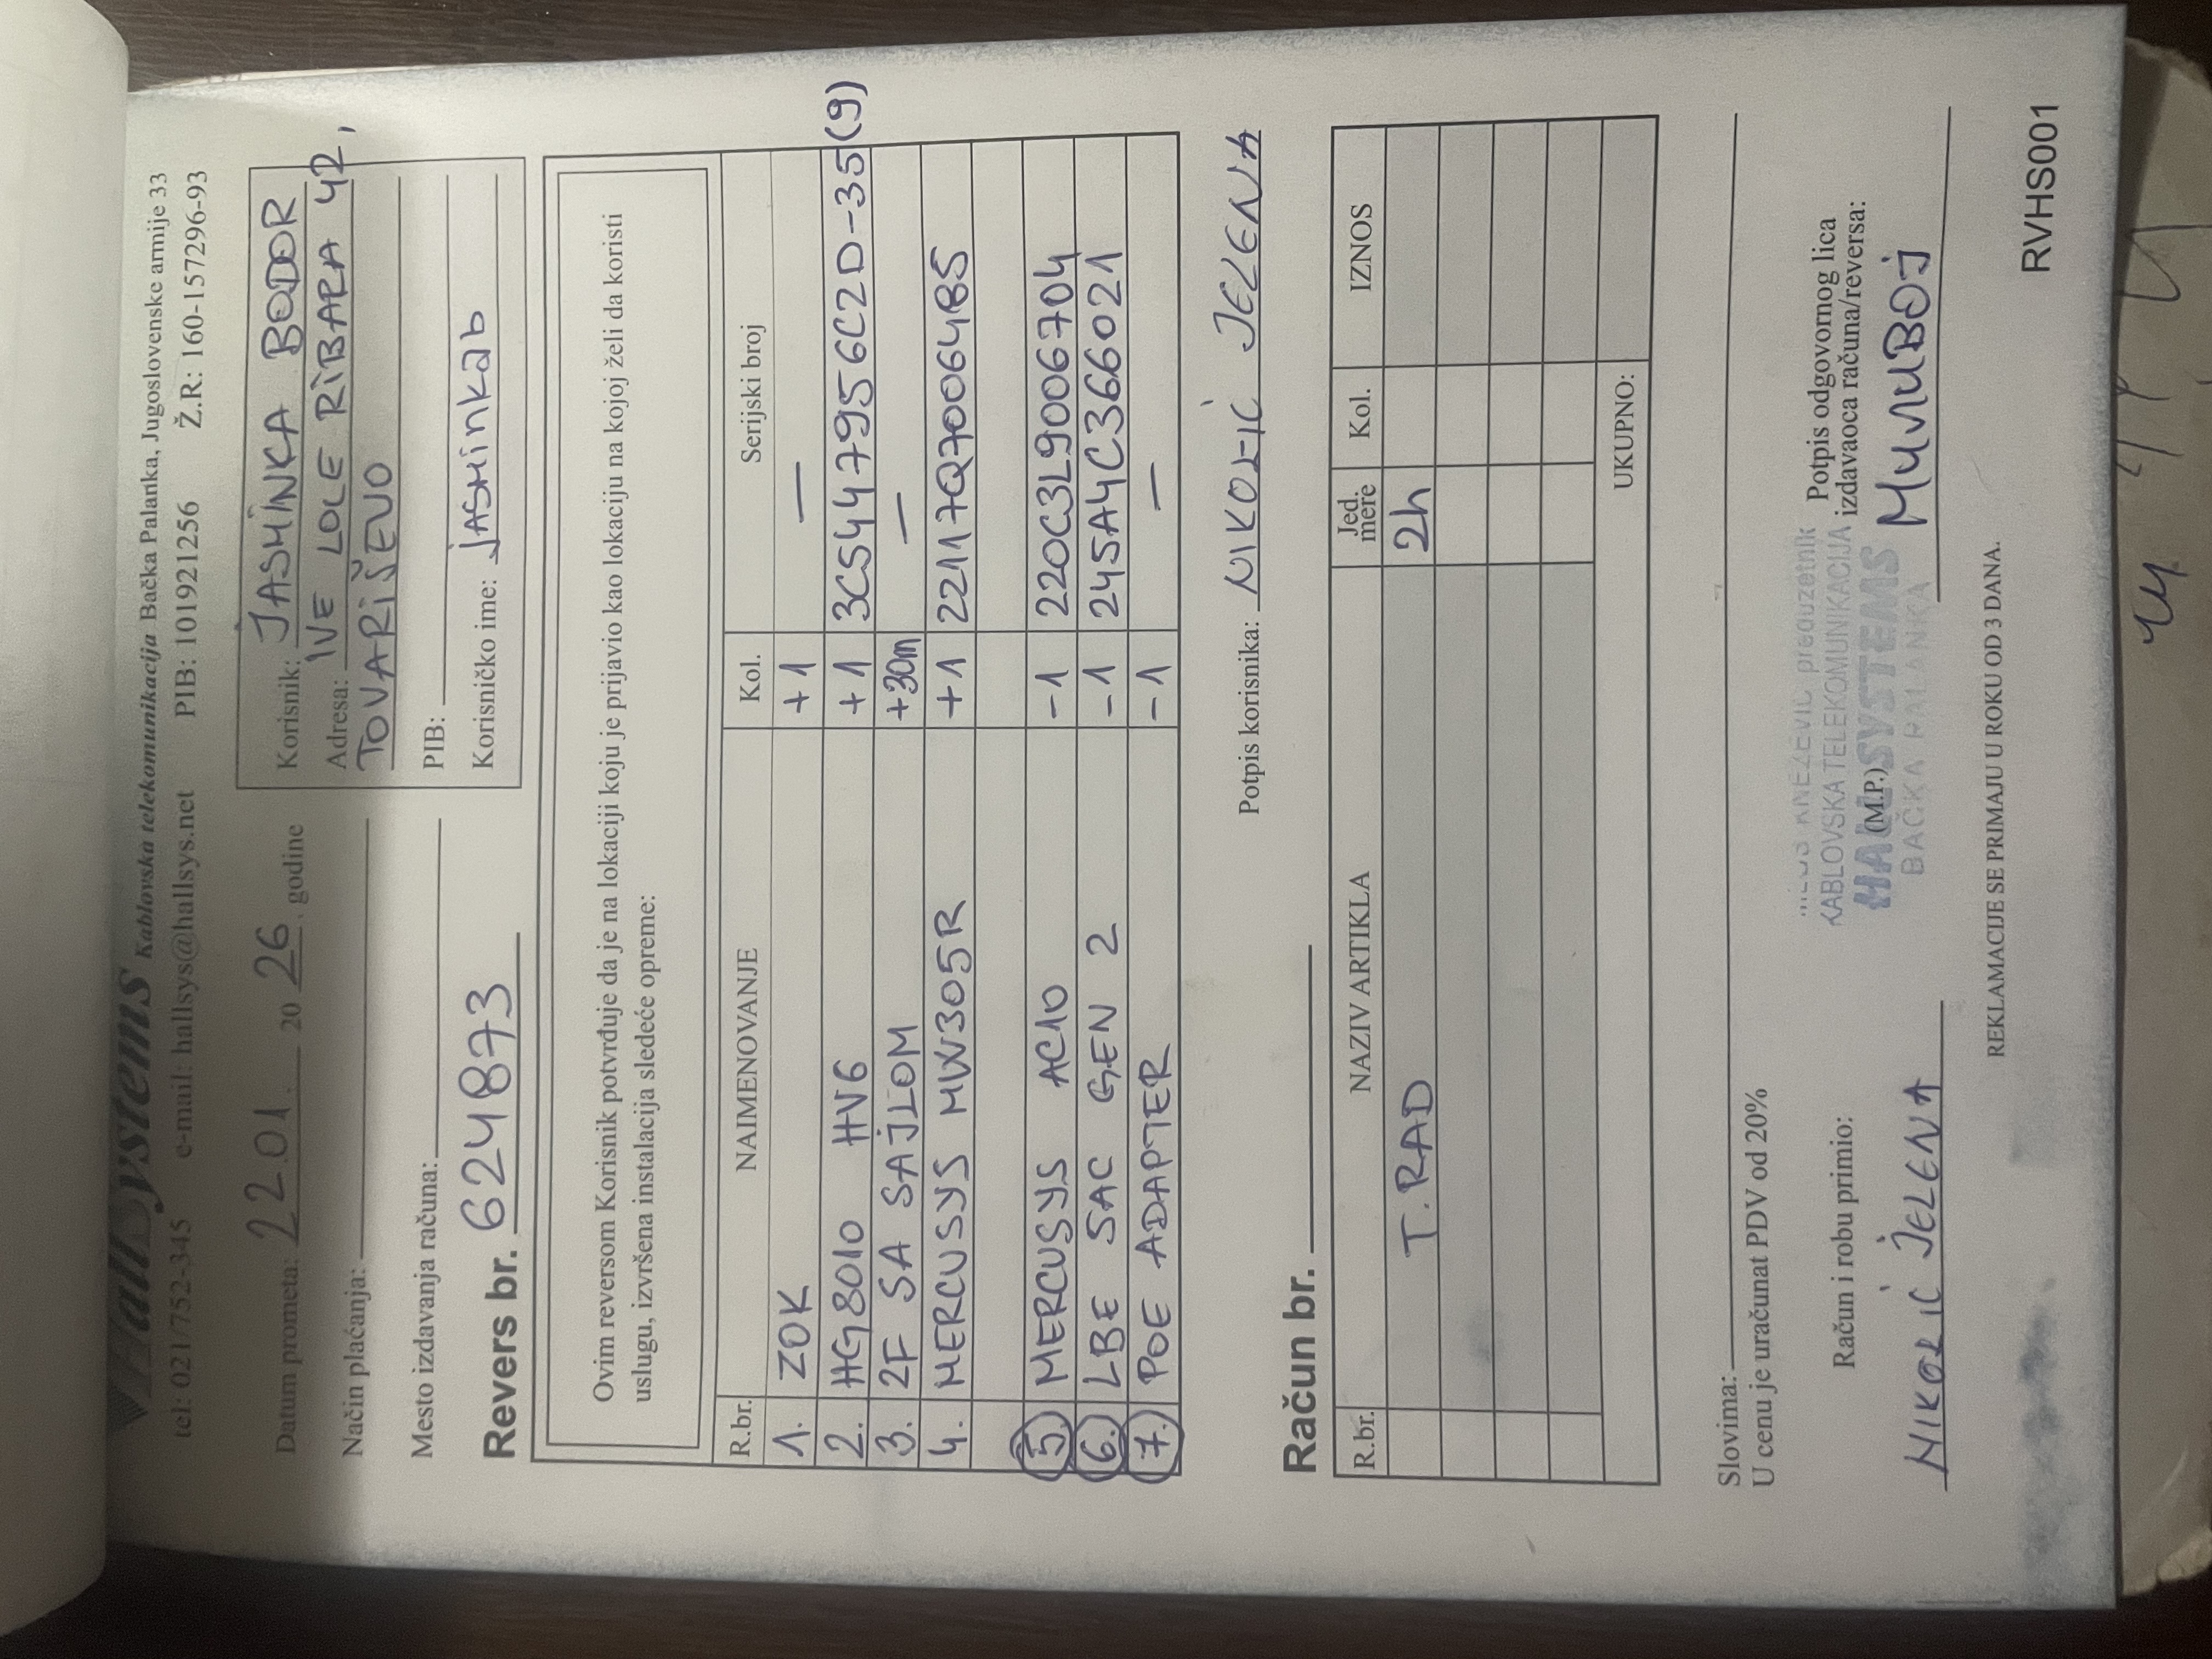 HallSystems Kablovska telekomunikacija Bačka Palanka, Jugoslovenske armije 33
tel: 021/752-345 e-mail: hallsys@hallsys.net PIB: 101921256 Ž.R: 160-157296-93
Datum prometa: 22.01. 20 26. godine
Način plaćanja:
Mesto izdavanja računa:
Revers br. 624873
Korisnik: JASMINKA BODOR
Adresa: IVE LOLE RIBARA 42,
TOVARIŠEVO
PIB:
Korisničko ime: jasminkab
Ovim reversom Korisnik potvrđuje da je na lokaciji koju je prijavio kao lokaciju na kojoj želi da koristi
uslugu, izvršena instalacija sledeće opreme:
R.br. NAIMENOVANJE Kol. Serijski broj
1. ZOK +1 —
2. HG8010 HV6 +1 3C5447956C2D-35(9)
3. 2F SA SAJLOM +30m —
4. MERCUSYS MW305R +1 22117Q7006485
5. MERCUSYS AC10 -1 220C3L9006704
6. LBE 5AC GEN 2 -1 245A4C366021
7. POE ADAPTER -1 —
Potpis korisnika: NIKOLIĆ JELENA
Račun br.
R.br. NAZIV ARTIKLA Jed. mere Kol. IZNOS
T. RAD 2h
UKUPNO:
Slovima:
U cenu je uračunat PDV od 20%
Račun i robu primio:
NIKOLIĆ JELENA
KNEŽEVIĆ preduzetnik
KABLOVSKA TELEKOMUNIKACIJA
HALLSYSTEMS
BAČKA PALANKA
(M.P.)
Potpis odgovornog lica
izdavaoca računa/reversa:
Миливој
REKLAMACIJE SE PRIMAJU U ROKU OD 3 DANA.
RVHS001